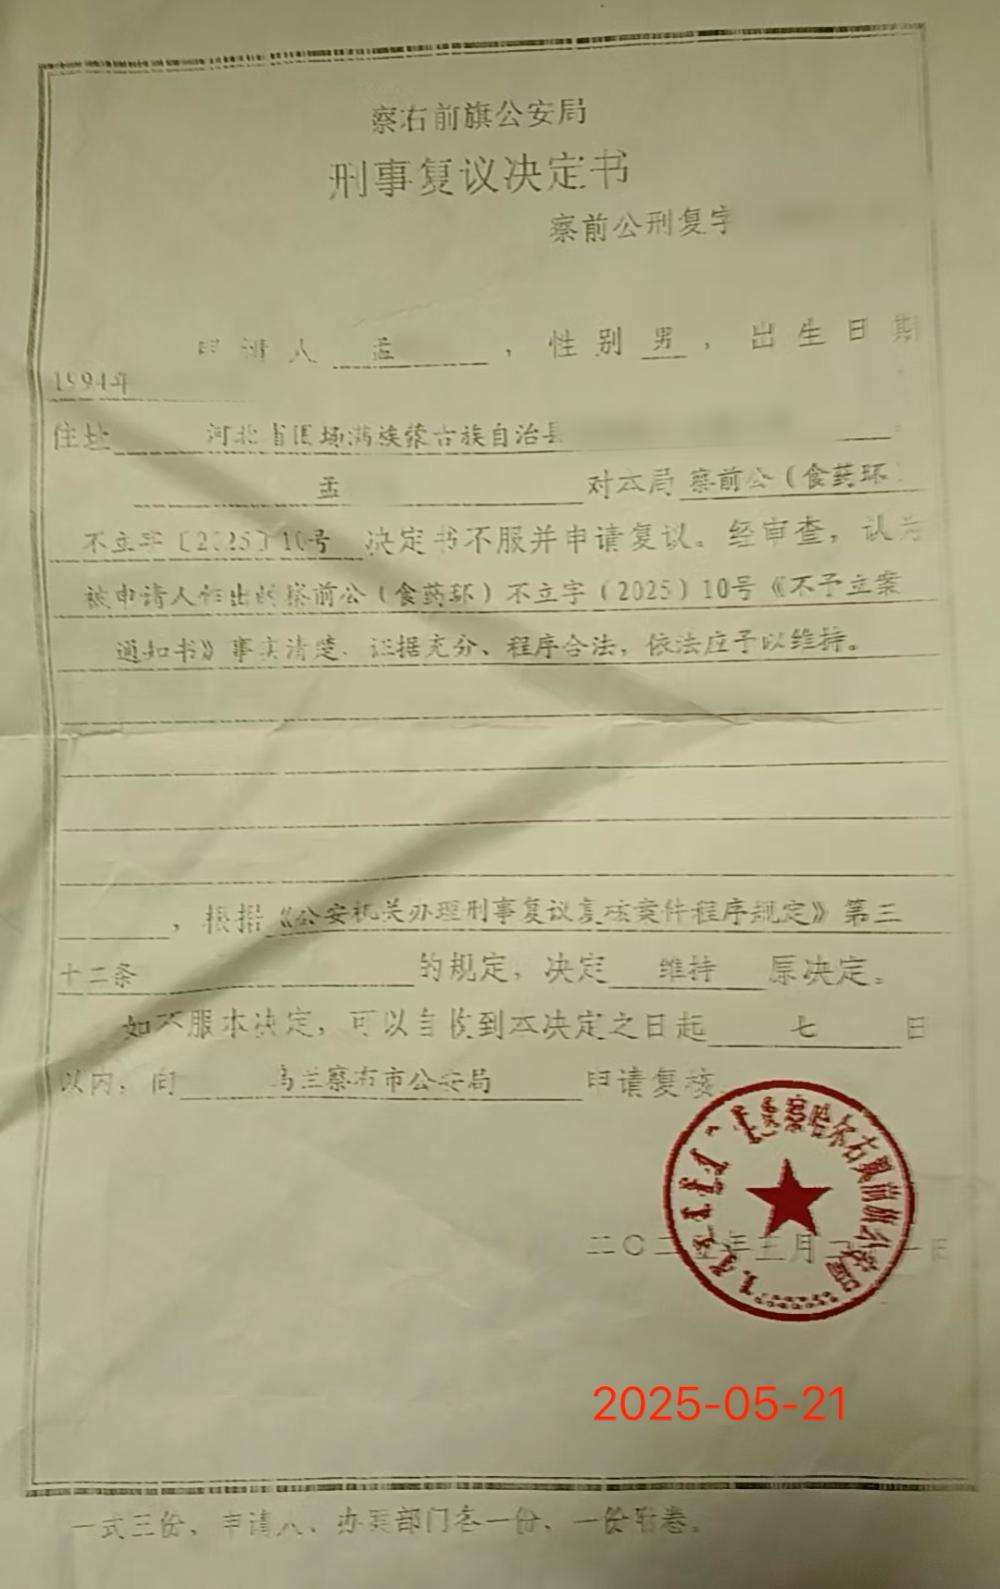 察右前旗公安局
刑事复议决定书
察前公刑复字
申请人 孟 ，性别 男 ，出生日期
1994年
住址 河北省围场满族蒙古族自治县
孟 对本局 察前公（食药环）
不立字〔2025〕10号 决定书不服并申请复议。经审查，认为
被申请人作出的察前公（食药环）不立字（2025）10号《不予立案
通知书》事实清楚、证据充分、程序合法，依法应予以维持。
，根据《公安机关办理刑事复议复核案件程序规定》第三
十二条 的规定，决定 维持 原决定。
如不服本决定，可以自收到本决定之日起 七 日
以内，向 乌兰察布市公安局 申请复核
察哈尔右翼前旗公安局
二〇二 年 月 日
2025-05-21
一式三份，申请人、办案部门各一份，一份附卷。